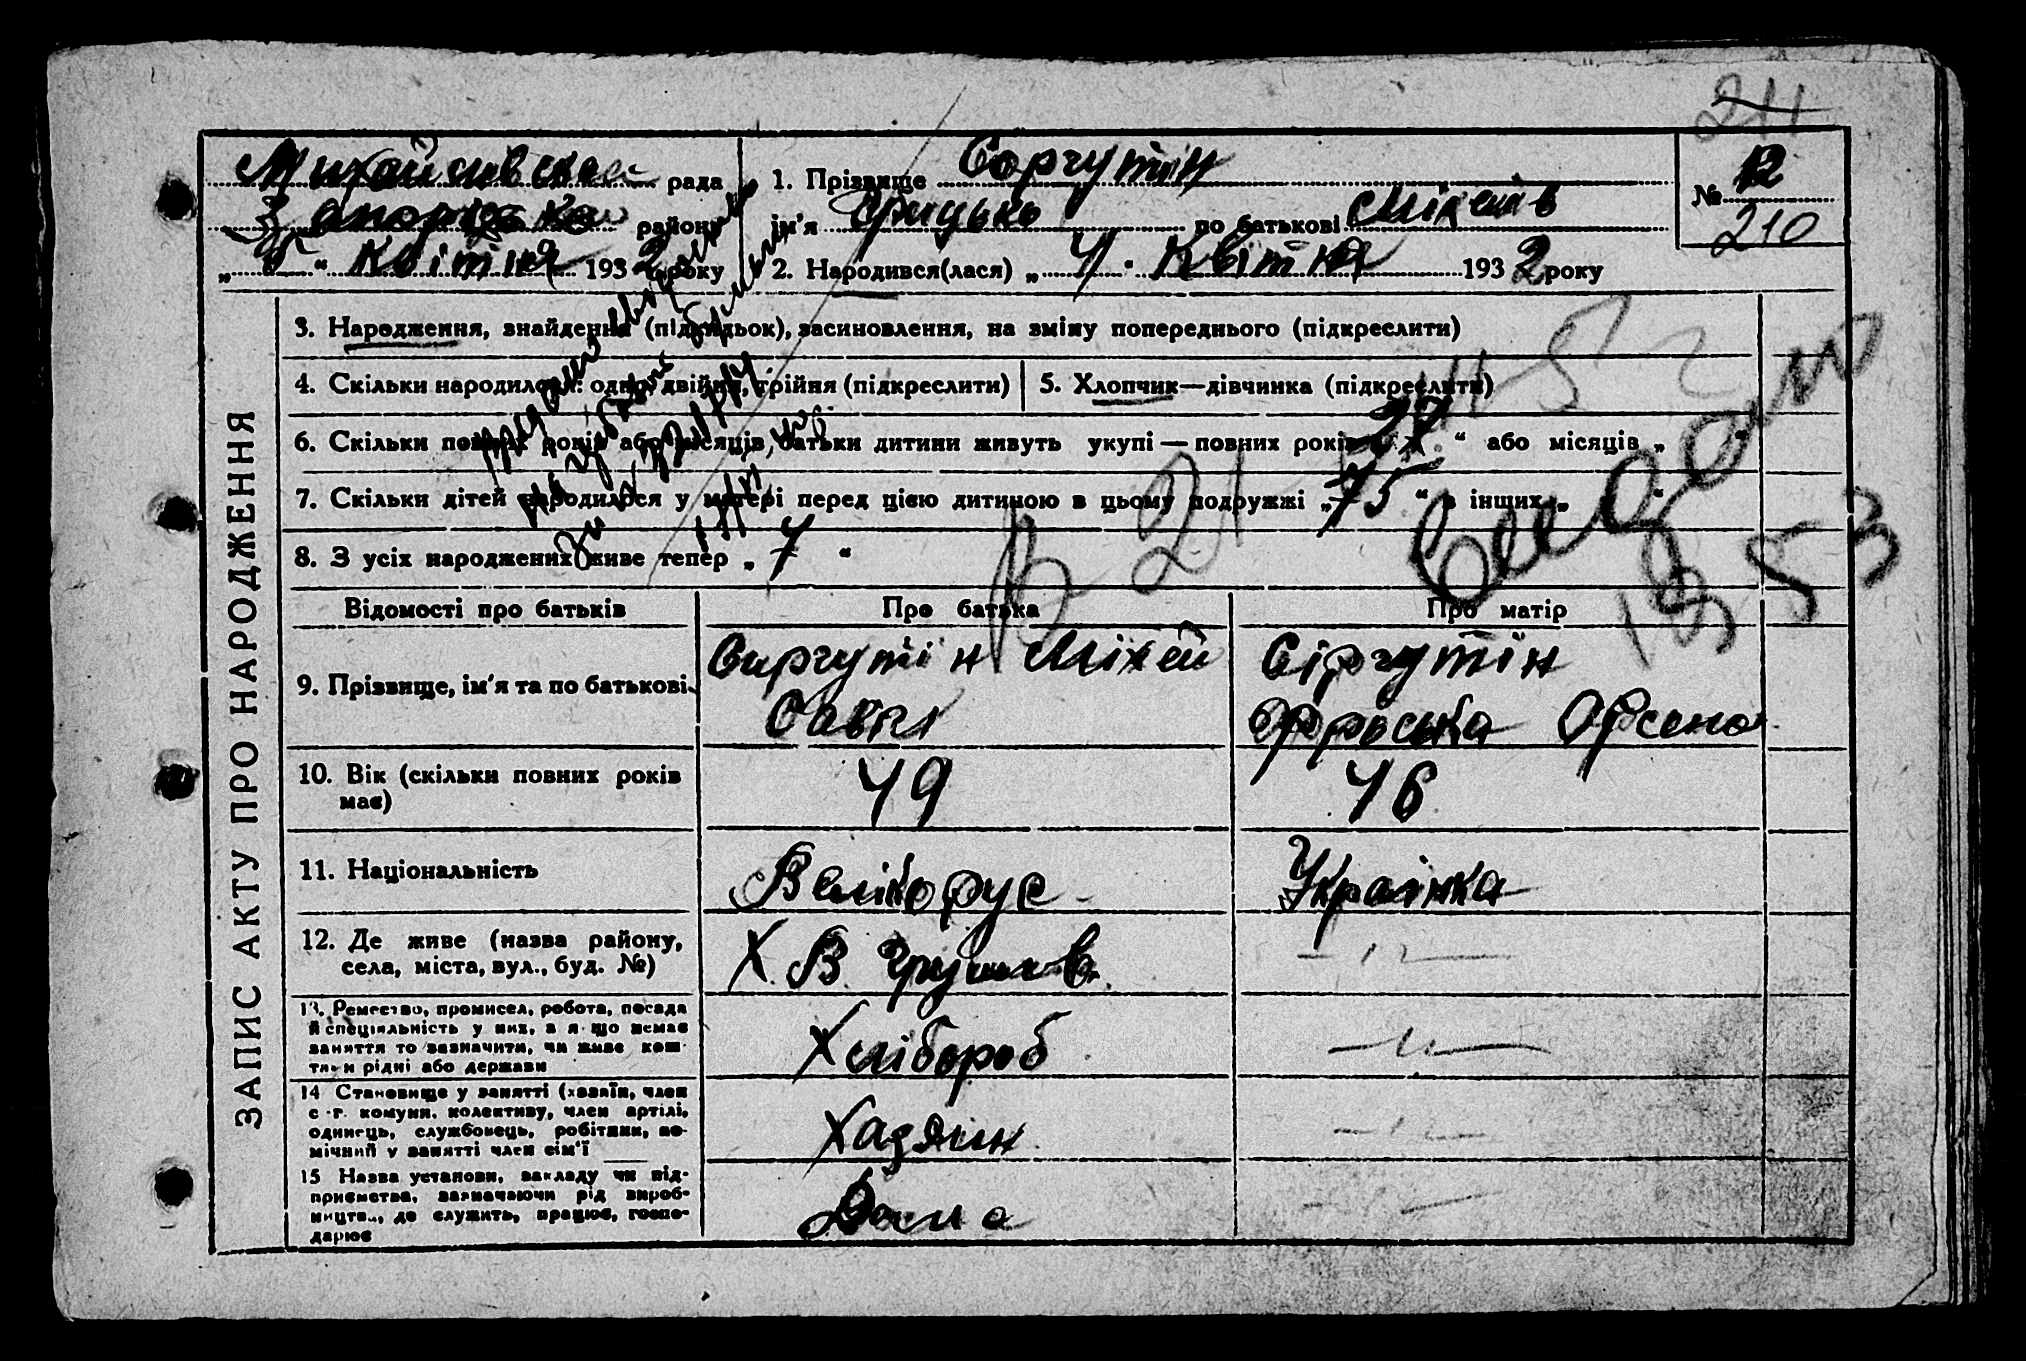 24
Михайлівська рада
Запорізького району
„ 5 “ Квітня 1932 року
1. Прізвище Соргутін
ім'я Грицько по батькові Міхеів
2. Народився(лася) „ 4 “ Квітня 1932 року
№ 12
210
ЗАПИС АКТУ ПРО НАРОДЖЕННЯ
3. Народження, знайдення (підкидьок), засиновлення, на зміну попереднього (підкреслити)
4. Скільки народилося: одно, двійня, трійня (підкреслити)
5. Хлопчик—дівчинка (підкреслити)
6. Скільки повних років або місяців батьки дитини живуть укупі — повних років „ 27 “ або місяців „
7. Скільки дітей народилося у матері перед цією дитиною в цьому подружжі „ 15 “ в інших „ “
8. З усіх народжених живе тепер „ 7 “
В 21
1953
Відомості про батьків
Про батька
Про матір
9. Прізвище, ім'я та по батькові
Сиргутін Міхей
Савич
Сіргутін
Фроська Орсено
10. Вік (скільки повних років має)
49
46
11. Національність
Велікорус
Українка
12. Де живе (назва району, села, міста, вул., буд. №)
Х. В. Грушев.
13. Ремество, промисел, робота, посада
й спеціяльність у них, а якщо немає
заняття то зазначити, чи живе кош-
тами рідні або держави
Хлібороб
14 Становище у занятті (хазяїн, член
с.-г. комуни, колективу, член артілі,
одинець, службовець, робітник, по-
мічний у занятті член сім'ї
Хадяин
15 Назва установи, закладу чи під-
приємства, зазначаючи рід вироб-
ництва, де служить, працює, госпо-
дарює
Дома